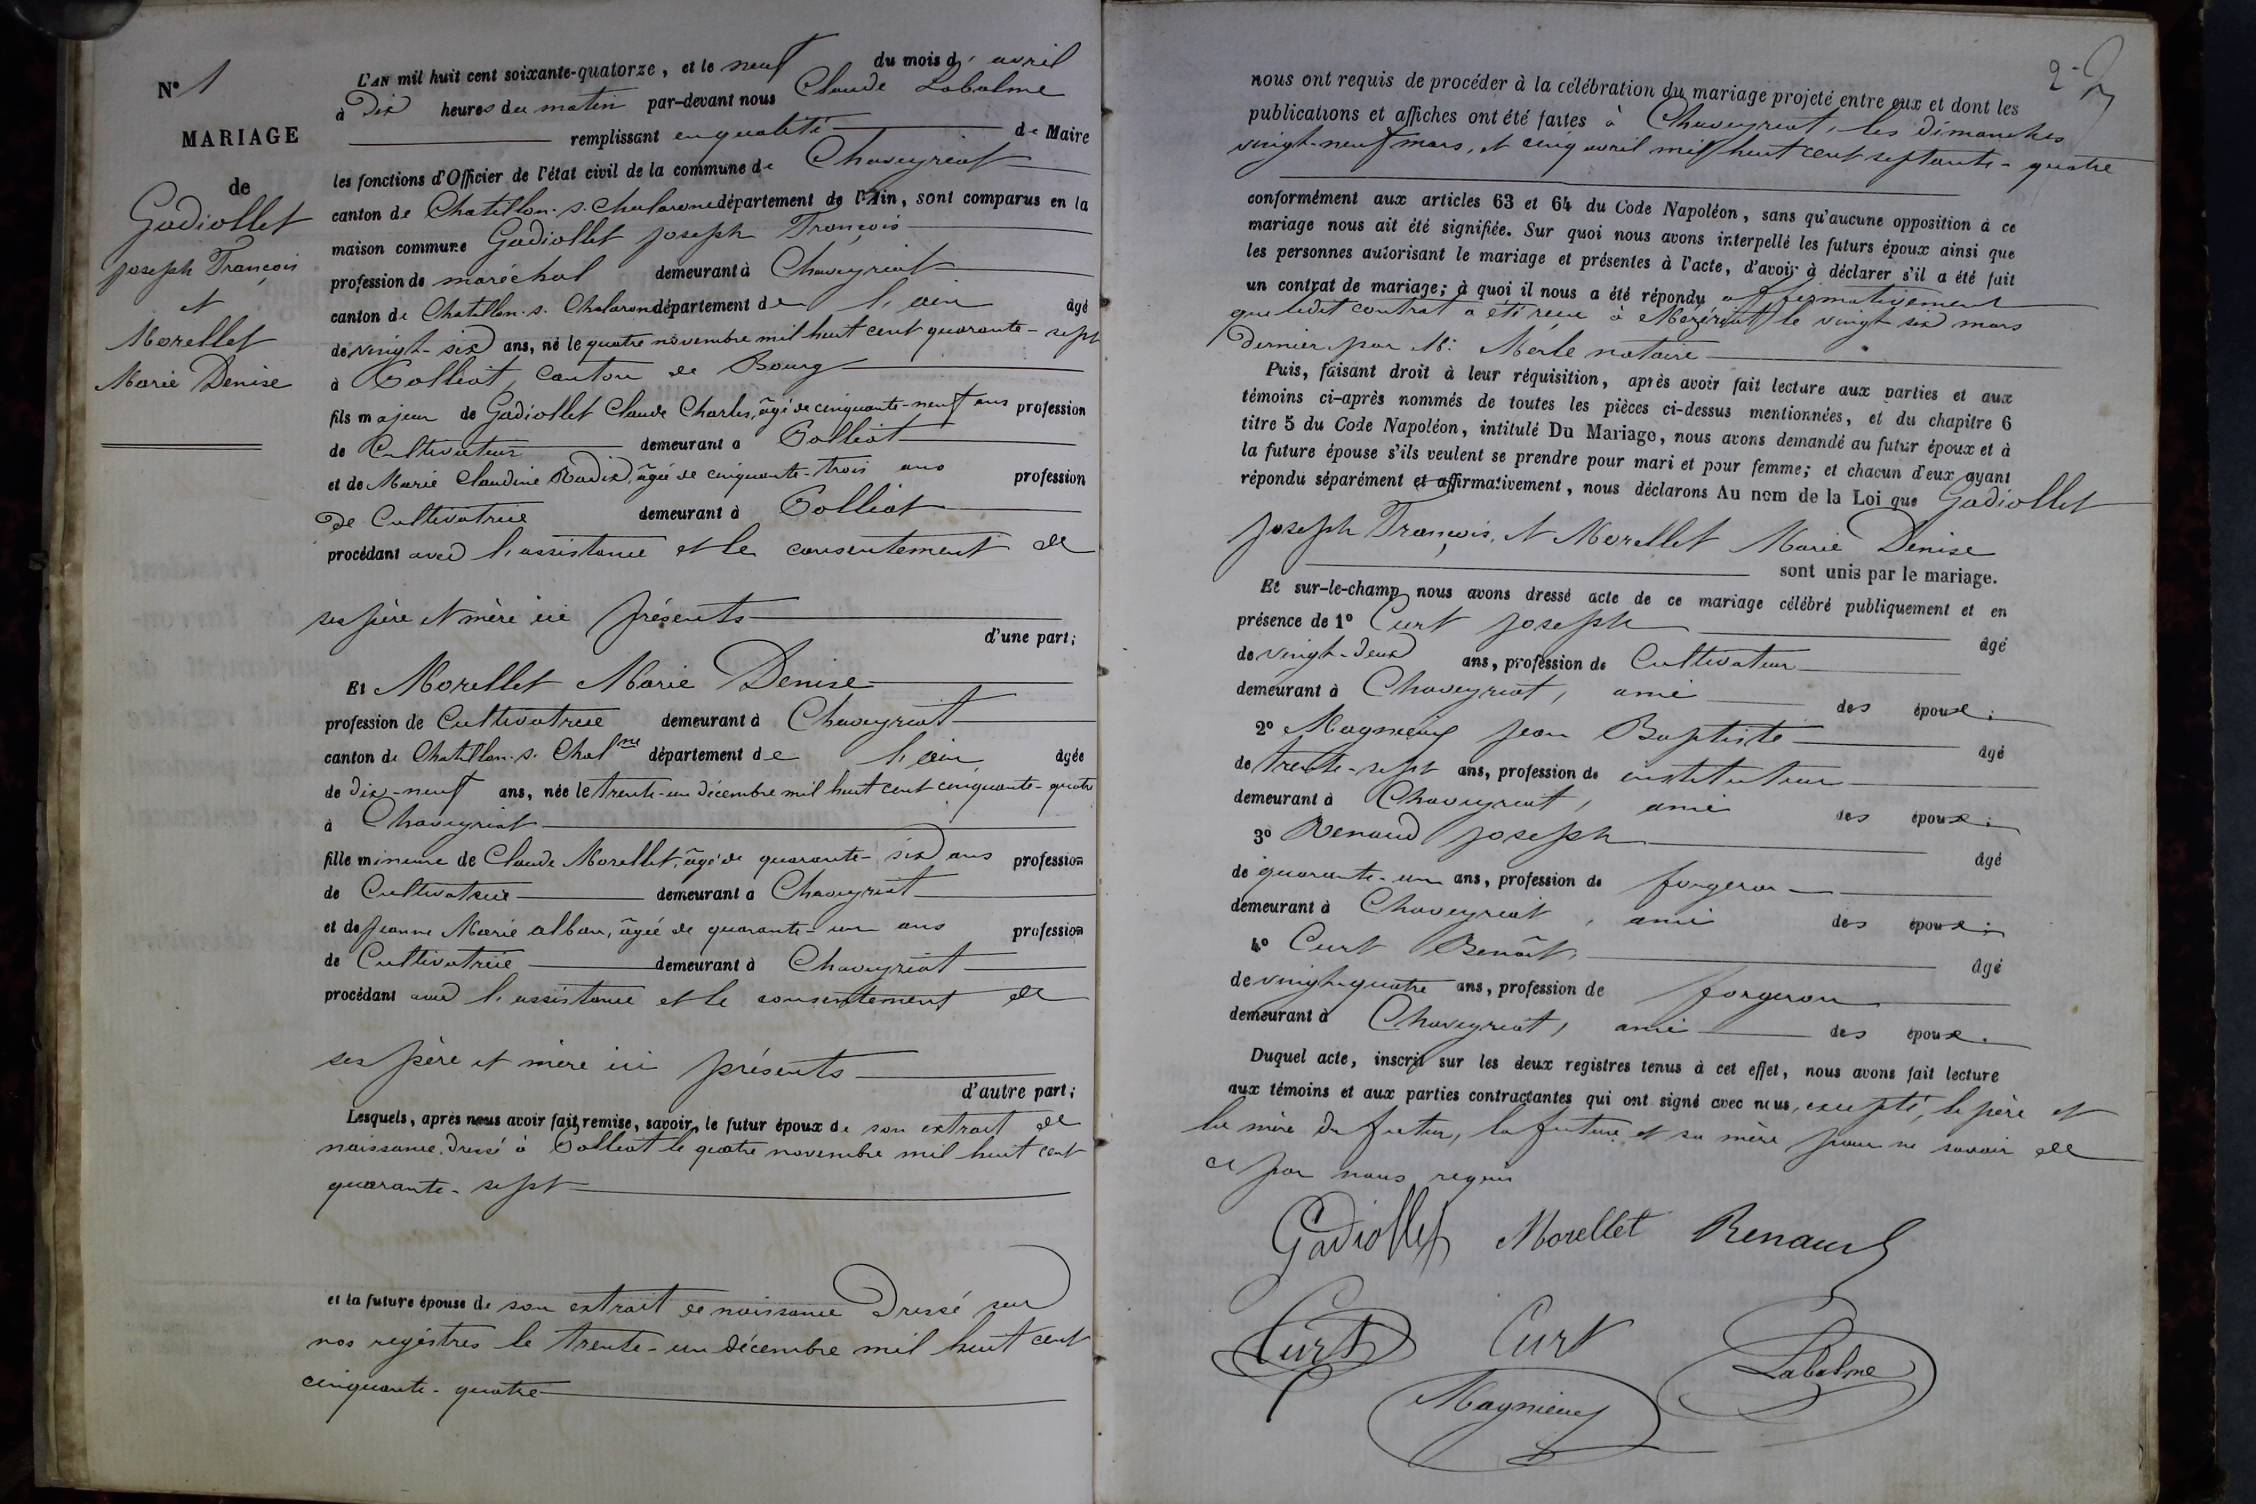 N° 1
MARIAGE
de
Gadiollet
Joseph François
et
Morellet
Marie Denise
L'AN mil huit cent soixante-quatorze, et le neuf du mois d'avril
à dix heures du matin par-devant nous Claude Labalme
remplissant en qualité de Maire
les fonctions d'Officier de l'état civil de la commune de Chaveyriat
canton de Chatillon-s-Chalaronne département de l'Ain, sont comparus en la
maison commune Gadiollet Joseph François
profession de maréchal demeurant à Chaveyriat
canton de Chatillon-s-Chalaron département de l'ain âgé
de vingt-six ans, né le quatre novembre mil huit cent quarante-sept
à Polliat, canton de Bourg
fils majeur de Gadiollet Claude Charles, âgé de cinquante-neuf ans profession
de Cultivateur demeurant à Polliat
et de Marie Claudine Radix, âgée de cinquante-trois ans profession
de Cultivatrice demeurant à Polliat
procédant avec l'assistance et le consentement de
ses père et mère ici présents
d'une part;
Et Morellet Marie Denise
profession de Cultivatrice demeurant à Chaveyriat
canton de Chatillon-s-Chal^ne département de l'ain âgée
de dix-neuf ans, née le trente-un décembre mil huit cent cinquante-quatre
à Chaveyriat
fille mineure de Claude Morellet, âgé de quarante-six ans profession
de Cultivateur demeurant à Chaveyriat
et de Jeanne Marie Alban, âgée de quarante-un ans profession
de Cultivatrice demeurant à Chaveyriat
procédant avec l'assistance et le consentement de
ses père et mère ici présents
d'autre part;
Lesquels, après nous avoir fait remise, savoir, le futur époux de son extrait de
naissance, dressé à Polliat le quatre novembre mil huit cent
quarante-sept
et la future épouse de son extrait de naissance dressé sur
nos registres le trente-un décembre mil huit cent
cinquante-quatre
2
nous ont requis de procéder à la célébration du mariage projeté entre eux et dont les
publications et affiches ont été faites à Chaveyriat, les dimanches
vingt-neuf mars, et cinq avril mil huit cent septante-quatre
conformément aux articles 63 et 64 du Code Napoléon, sans qu'aucune opposition à ce
mariage nous ait été signifiée. Sur quoi nous avons interpellé les futurs époux ainsi que
les personnes autorisant le mariage et présentes à l'acte, d'avoir à déclarer s'il a été fait
un contrat de mariage; à quoi il nous a été répondu affirmativement
que ledit contrat a été reçu à Mézériat le vingt six mars
dernier par M^e Merle notaire
Puis, faisant droit à leur réquisition, après avoir fait lecture aux parties et aux
témoins ci-après nommés de toutes les pièces ci-dessus mentionnées, et du chapitre 6
titre 5 du Code Napoléon, intitulé Du Mariage, nous avons demandé au futur époux et à
la future épouse s'ils veulent se prendre pour mari et pour femme; et chacun d'eux ayant
répondu séparément et affirmativement, nous déclarons Au nom de la Loi que Gadiollet
Joseph François, et Morellet Marie Denise
sont unis par le mariage.
Et sur-le-champ nous avons dressé acte de ce mariage célébré publiquement et en
présence de 1° Curt Joseph âgé
de vingt-deux ans, profession de Cultivateur
demeurant à Chaveyriat, ami des époux;
2° Magnieny Jean Baptiste âgé
de trente-sept ans, profession de instituteur
demeurant à Chaveyriat, ami des époux;
3° Renaud Joseph âgé
de quarante-un ans, profession de forgeron
demeurant à Chaveyriat, ami des époux;
4° Curt Benoît âgé
de vingt-quatre ans, profession de forgeron
demeurant à Chaveyriat, ami des époux.
Duquel acte, inscrit sur les deux registres tenus à cet effet, nous avons fait lecture
aux témoins et aux parties contractantes qui ont signé avec nous, excepté, le père et
la mère du futur, la future, et sa mère pour ne savoir de
ce par nous requis
Gadiollet Morellet Renaud
Curt Curt Labalme
Magnieny